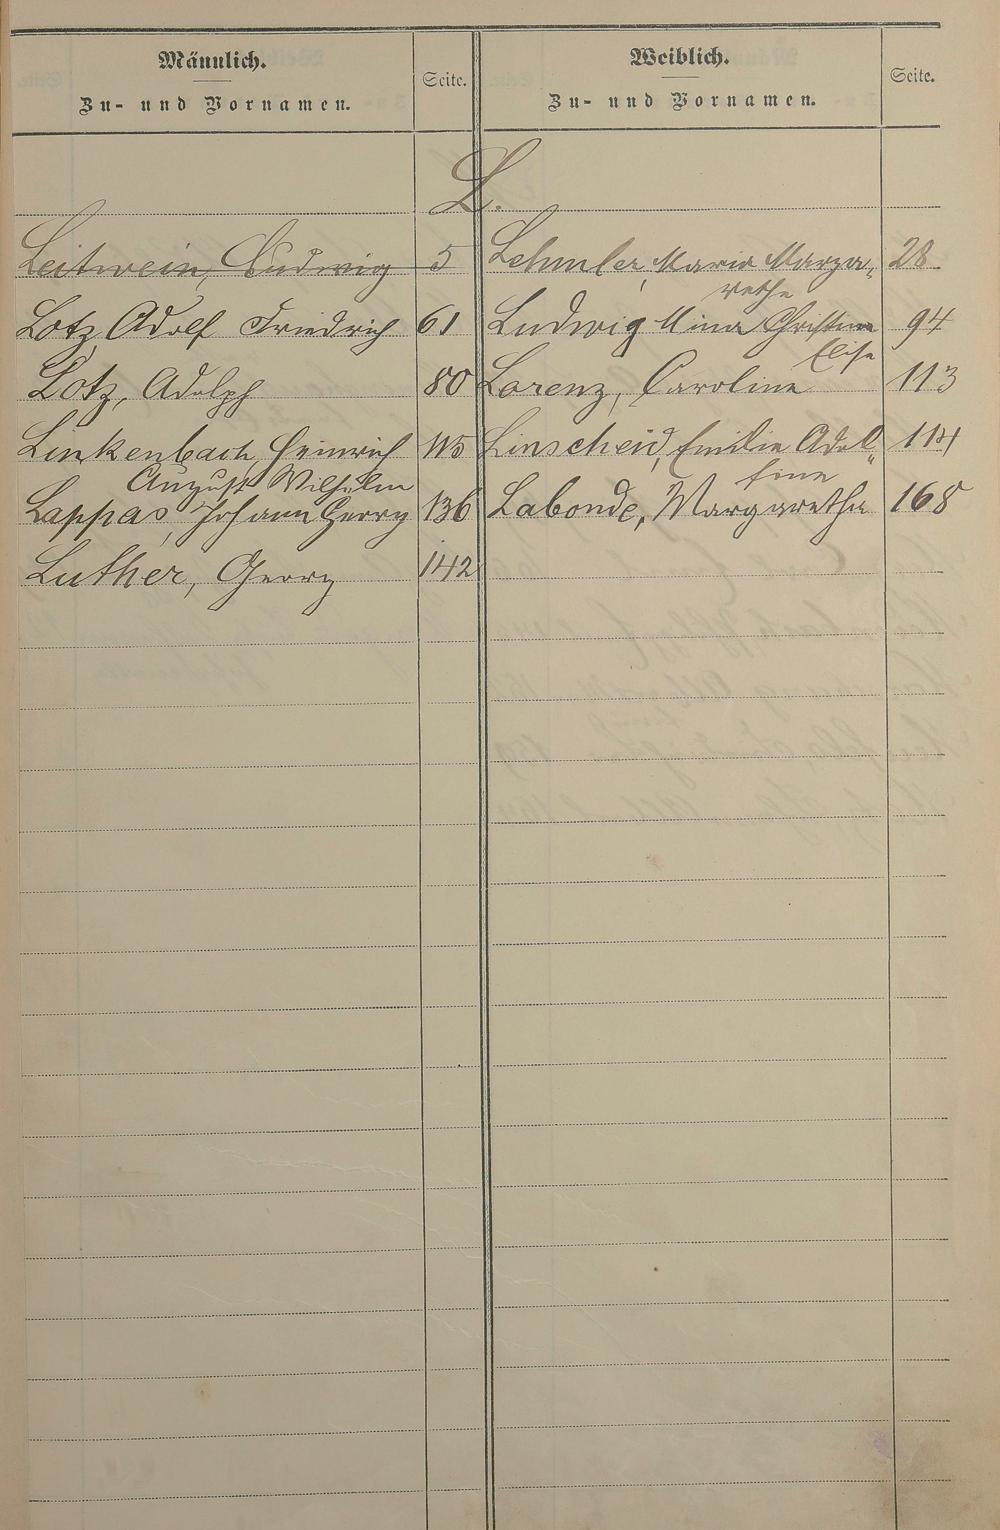 Männlich.
Zu- und Vornamen.
Seite.
Weiblich.
Zu- und Vornamen.
Seite.
L.
Leitwein, Ludwig 5
Lotz, Adolf Friedrich 61
Lotz, Adolph 80
Linkenbach, Heinrich 115
August Wilhelm
Lappas, Johann Georg 136
Luther, Georg 142
Lehmler, Maria Marga- 28
rethe
Ludwig Mina Christine 94
Elise
Lorenz, Caroline 113
Linscheid, Emilie Adol- 114
fine
Labonde, Margarethe 168